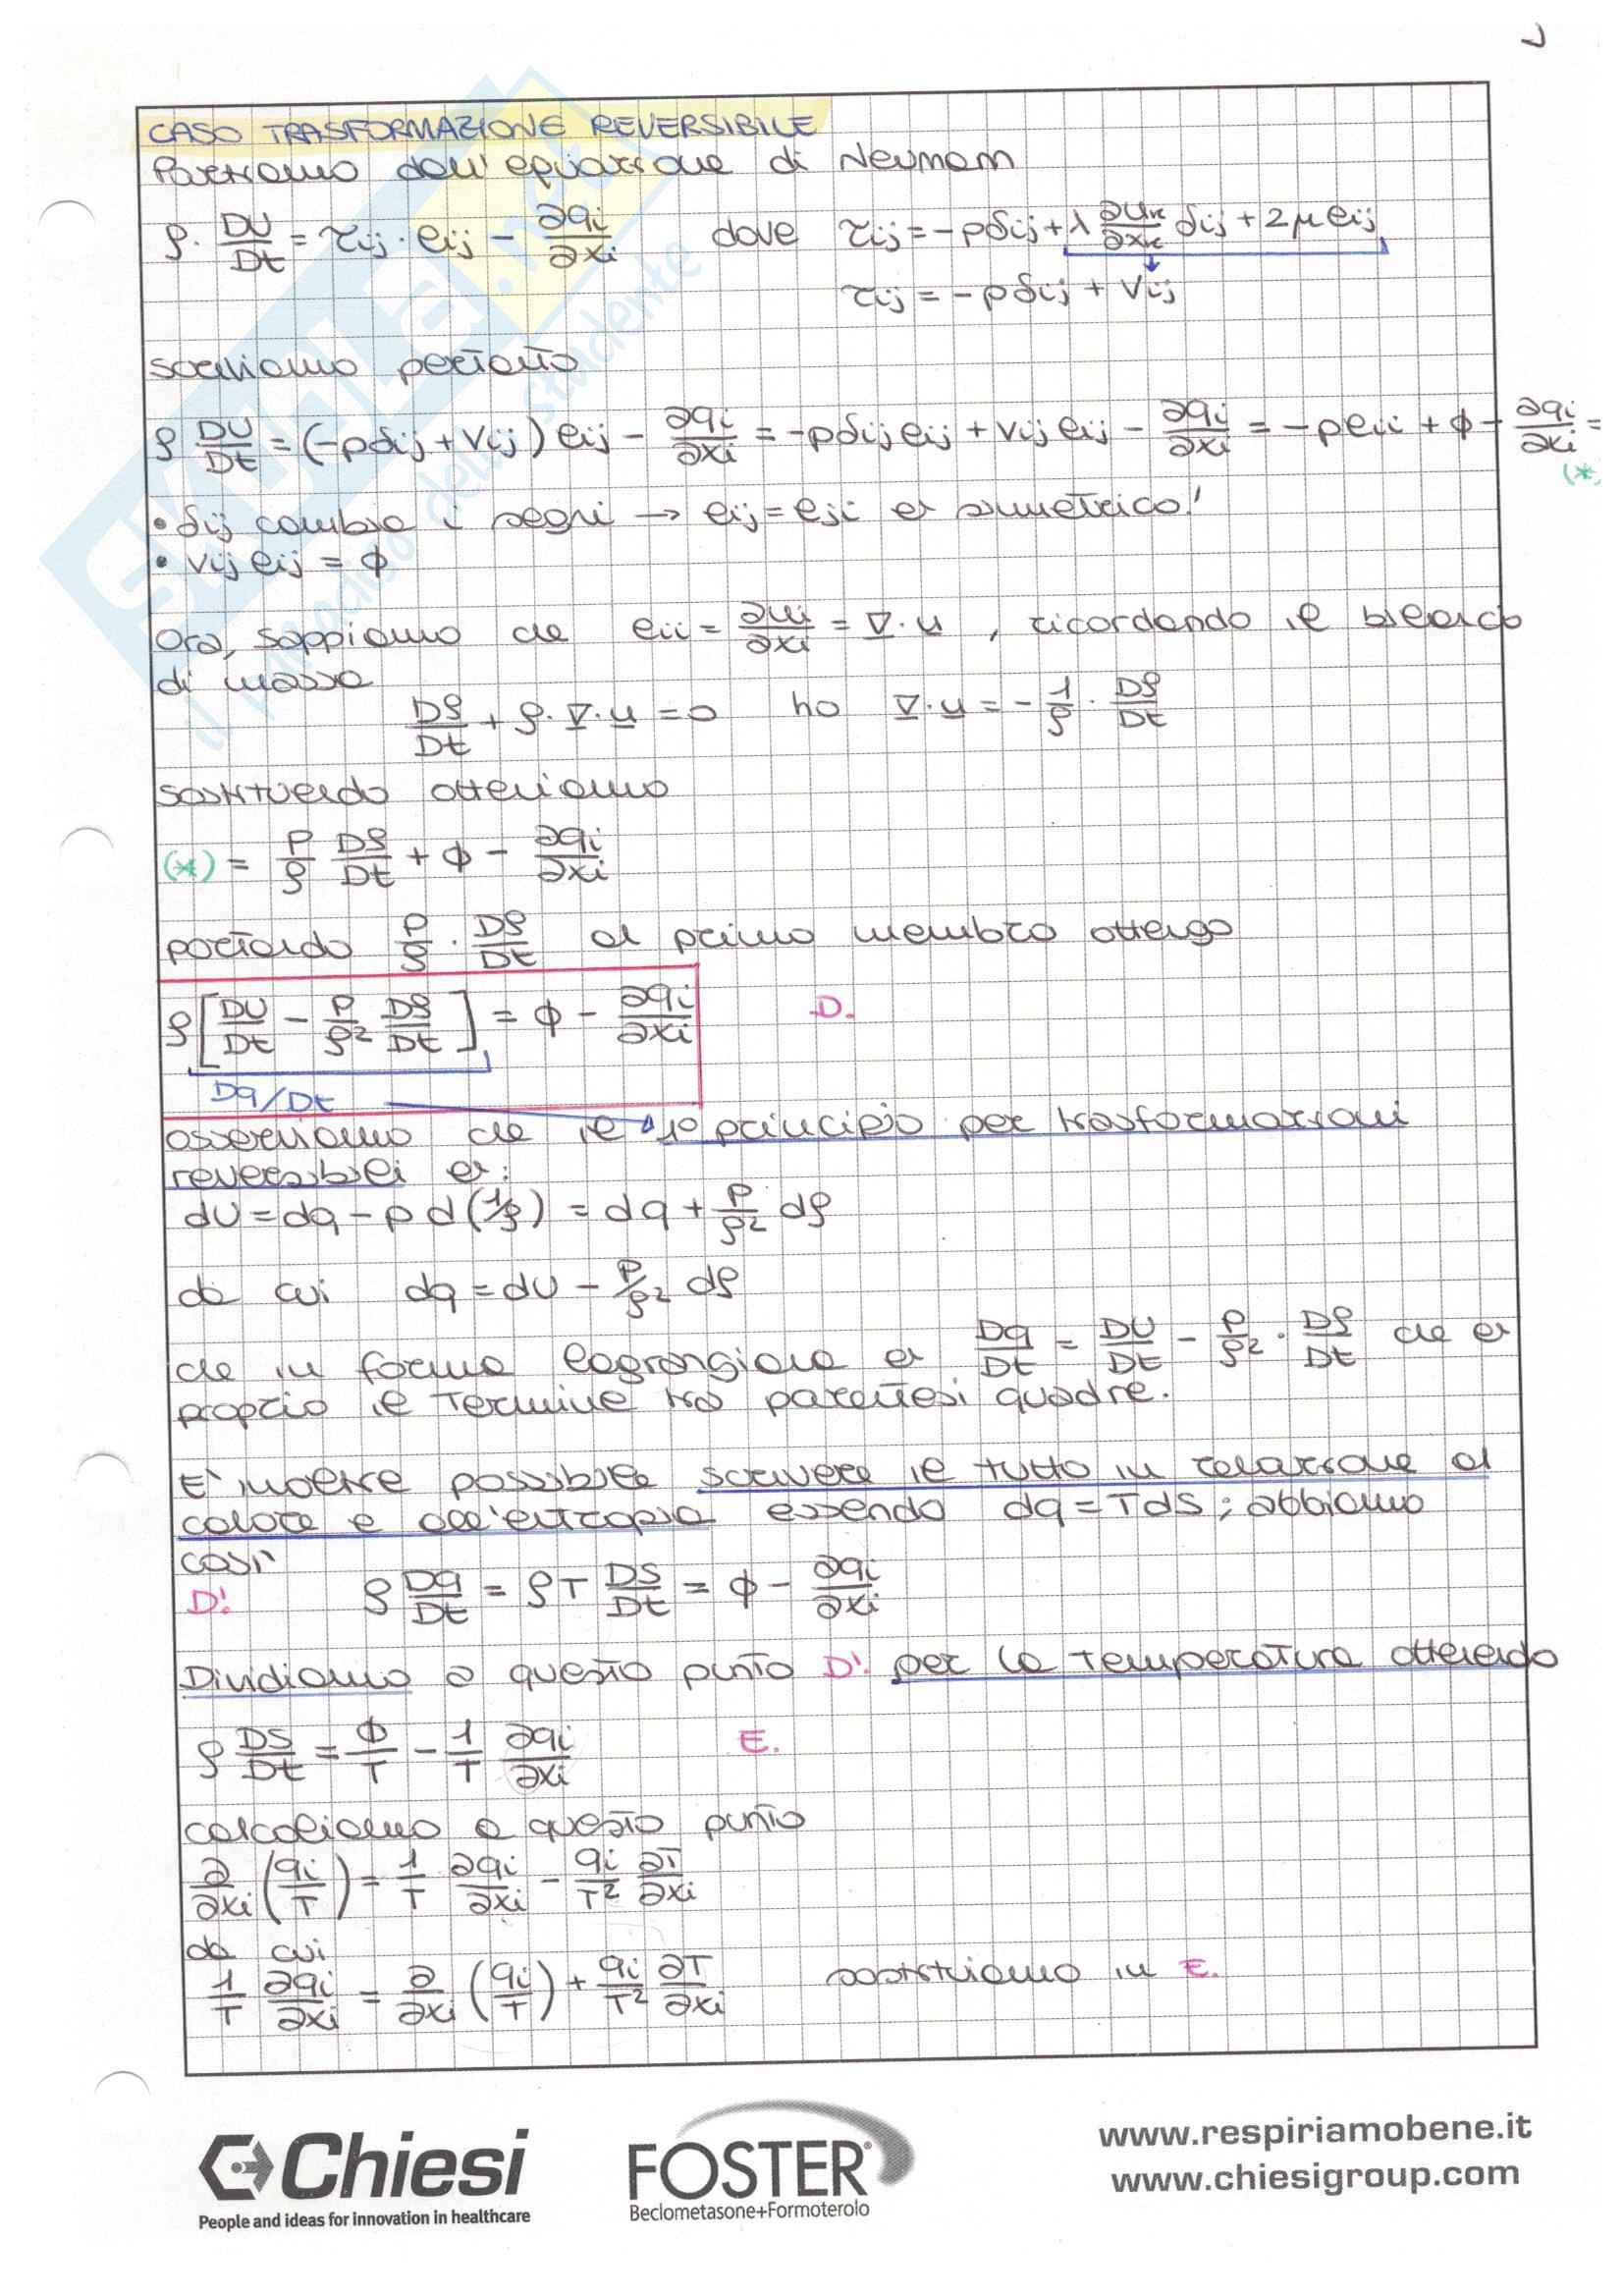 CASO TRASFORMAZIONE REVERSIBILE
Partiamo dall'equazione di Neumann
ρ· DU/Dt = τij · eij - ∂qi/∂xi dove τij = -pδij + λ ∂uk/∂xk δij + 2μeij
τij = -pδij + Vij
scriviamo pertanto
ρ DU/Dt = (-pδij + Vij) eij - ∂qi/∂xi = -pδij eij + Vij eij - ∂qi/∂xi = -peii + ϕ - ∂qi/∂xi =
(*)
• δij cambia i segni → eij = eji è simmetrico!
• Vij eij = ϕ
Ora, sappiamo che eii = ∂ui/∂xi = ∇·u , ricordando il bilancio
di massa
Dρ/Dt + ρ·∇·u = 0 ho ∇·u = - 1/ρ · Dρ/Dt
sostituendo otteniamo
(*) = P/ρ Dρ/Dt + ϕ - ∂qi/∂xi
portando P/ρ · Dρ/Dt al primo membro ottengo
ρ [DU/Dt - P/ρ² Dρ/Dt] = ϕ - ∂qi/∂xi D.
Dq/Dt
osserviamo che il 1° principio per trasformazioni
reversibili è:
dU = dq - p d(1/ρ) = dq + P/ρ² dρ
da cui dq = dU - P/ρ² dρ
che in forma lagrangiana è Dq/Dt = DU/Dt - P/ρ² · Dρ/Dt che è
proprio il termine tra parentesi quadre.
E' inoltre possibile scrivere il tutto in relazione al
calore e all'entropia essendo dq = TdS ; abbiamo
così
D'. ρ Dq/Dt = ρT DS/Dt = ϕ - ∂qi/∂xi
Dividiamo a questo punto D'. per la temperatura ottenendo
ρ DS/Dt = ϕ/T - 1/T ∂qi/∂xi E.
calcoliamo a questo punto
∂/∂xi (qi/T) = 1/T ∂qi/∂xi - qi/T² ∂T/∂xi
da cui
1/T ∂qi/∂xi = ∂/∂xi (qi/T) + qi/T² ∂T/∂xi sostituiamo in E.
Chiesi
People and ideas for innovation in healthcare
FOSTER®
Beclometasone+Formoterolo
www.respiriamobene.it
www.chiesigroup.com